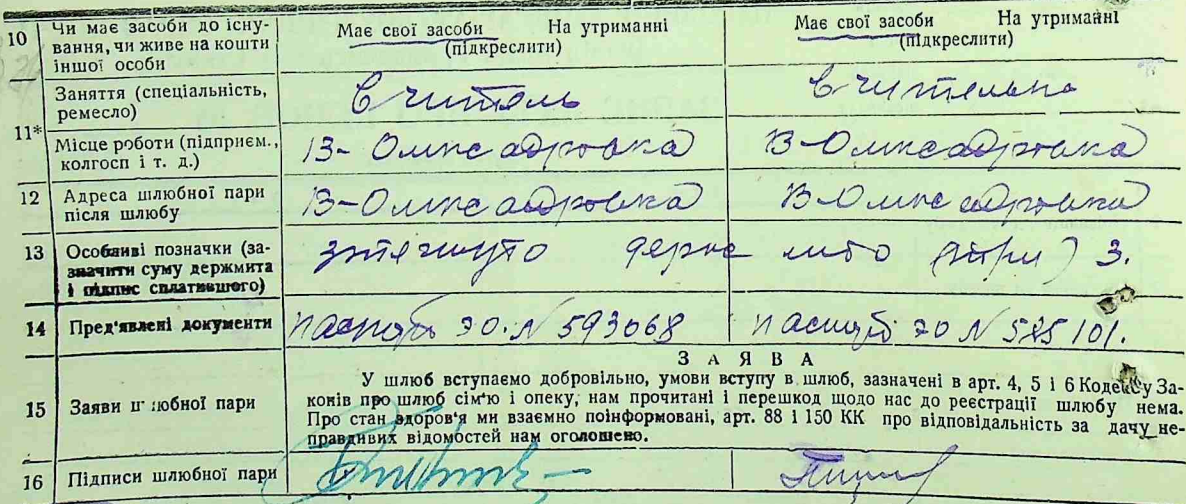 10 Чи має засоби до існу-
вання, чи живе на кошти
іншої особи
Має свої засоби На утриманні
(підкреслити)
Має свої засоби На утриманні
(підкреслити)
11*
Заняття (спеціальність,
ремесло)
вчитель
вчителька
Місце роботи (підприєм.,
колгосп і т. д.)
В-Олександровка
В-Олександровка
12 Адреса шлюбної пари
після шлюбу
В-Олександровка
В-Олександровка
13 Особливі позначки (за-
значити суму держмита
і підпис сплатившого)
стягнуто держ мито (три) 3.
14 Пред'явлені документи
паспорт № 593068
паспорт № 585101.
ЗАЯВА
15 Заяви шлюбної пари
У шлюб вступаємо добровільно, умови вступу в шлюб, зазначені в арт. 4, 5 і 6 Кодексу За-
конів про шлюб сім'ю і опеку, нам прочитані і перешкод щодо нас до реєстрації шлюбу нема.
Про стан здоров'я ми взаємно поінформовані, арт. 88 і 150 КК про відповідальність за дачу не-
правдивих відомостей нам оголошено.
16 Підписи шлюбної пари